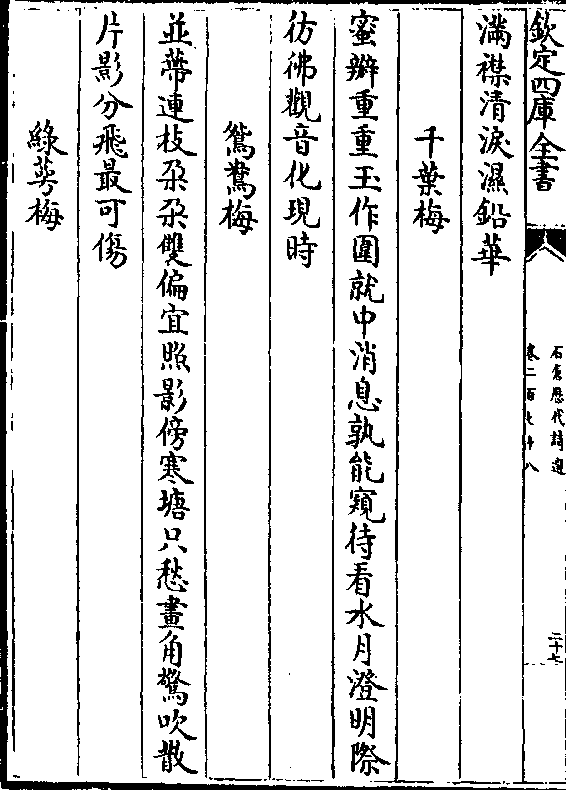 欽定四庫全書
石倉歷代詩選
卷二百七十八
二十七
滿襟清淚濕鉛華
千葉梅
蜜瓣重重玉作圍就中消息孰能窺待看水月澄明際
彷彿觀音化現時
鴛鴦梅
並蔕連枝朶朶雙偏宜照影傍寒塘只愁畫角驚吹散
片影分飛最可傷
綠萼梅